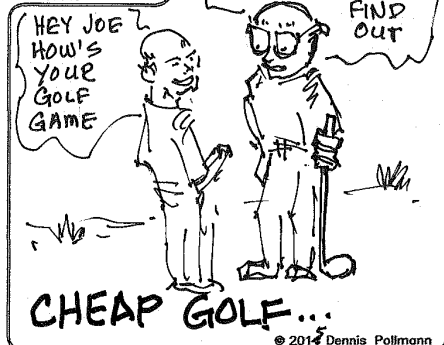 HEY JOE
HOW'S
YOUR
GOLF
GAME
FIND
OUT
CHEAP GOLF...
© 2015 Dennis Pollmann